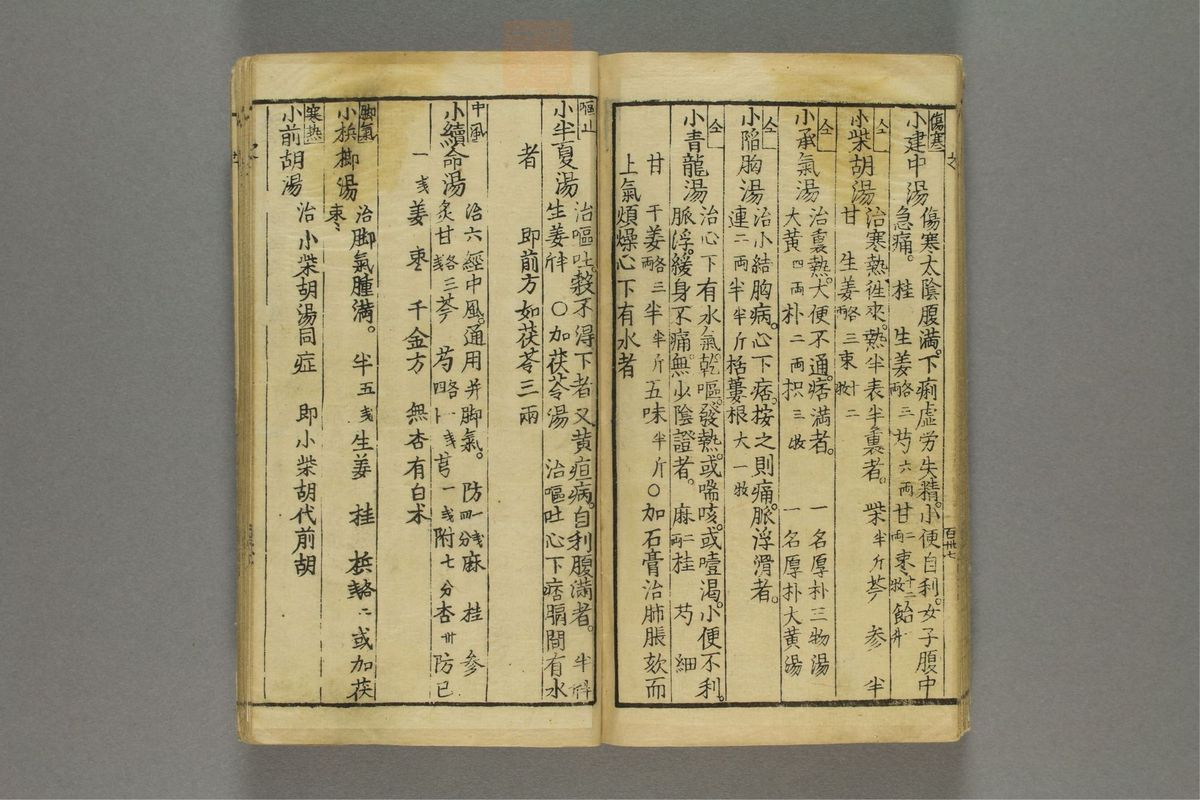 傷寒
小建中湯
傷寒太陰腹満。下痢虚労失精。小便自利。女子腹中
急痛。 桂 生姜 畧三 両 芍 六両 甘 二両 枣 十二牧 飴 升
仝
小柴胡湯
治寒熱徃来。熱半表半裏者。 柴 半斤 芩 参 半
甘 生姜 畧三 両 枣 十二牧
仝
小承氣湯
治裏熱。大便不通。痞満者。 一名厚朴三物湯
大黄 四両 朴 二両 枳 三牧 一名厚朴大黄湯
仝
小陥胸湯
治小結胸病。心下痞。按之則痛。脈浮滑者。
連 二両 半 半斤 栝蔞根 大一牧
仝
小青龍湯
治心下有水氣。乾嘔。發熱。或喘咳。或噎渇。小便不利。
脈浮。緩身不痛。無少陰證者。 麻 二両 桂 芍 細
甘 干姜 畧三 両 半 半斤 五味 半斤 ○加石膏治肺脹欬而
上氣煩燥心下有水者
百卅七
嘔止
小半夏湯
治嘔吐。穀不得下者又黄疸病。自利腹満者。 半
生姜 ○加茯苓湯 治嘔吐心下痞膈間有水
者 即前方如茯苓三兩
中風
小續命湯
治六經中風。通用并脚氣。 防 一戔四分 麻 桂 参
炙甘 畧三 芩 芍 一戔 芎 一戔 附 七分 杏 卅 防已
一戔 姜 枣 千金方 無杏有白朮
脚氣
小梹榔湯
治脚氣腫満。 半 五戔 生姜 桂 梹 畧二 或加茯
枣
寒热
小前胡湯
治小柴胡湯同症 即小柴胡代前胡